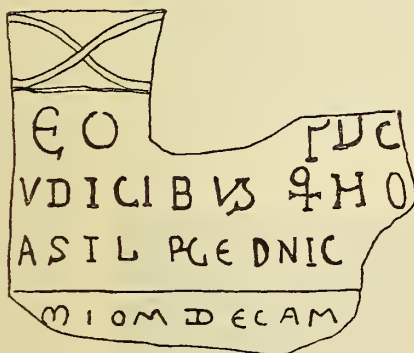 ЄO ΓUC
VDICIBVS ⳨HO
ASIL PGEDNIC
MIOMDECAM